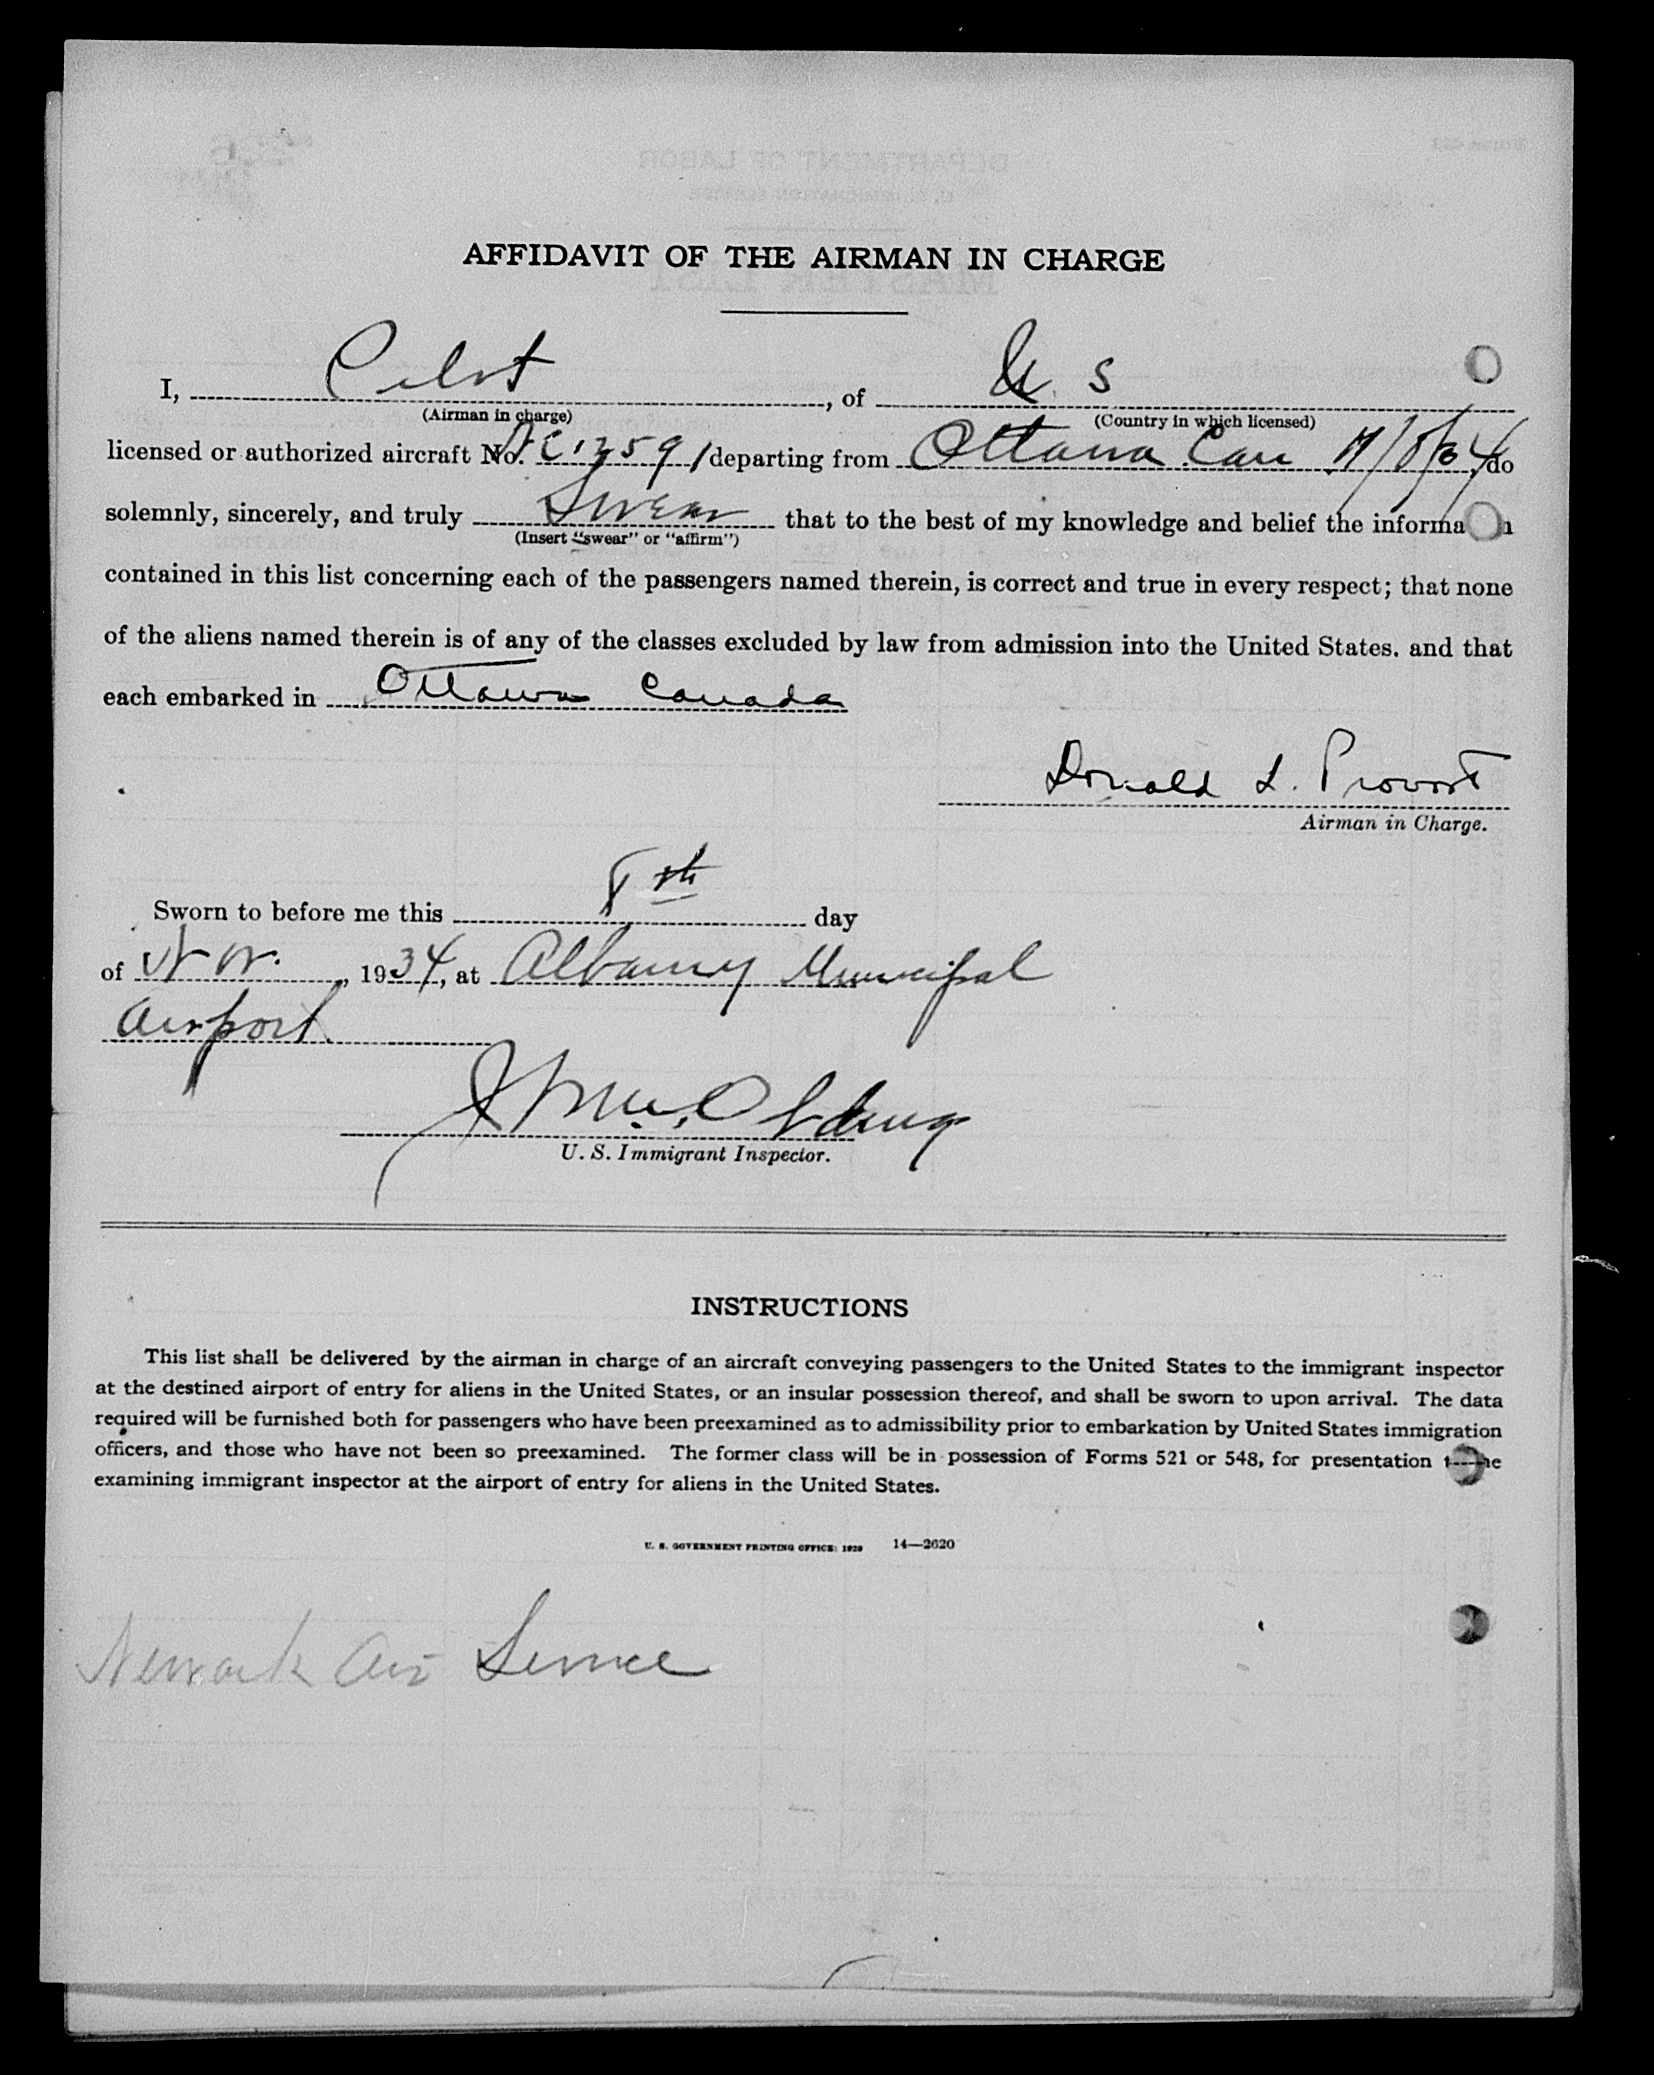 AFFIDAVIT OF THE AIRMAN IN CHARGE
I, Pilot, of U. S
(Airman in charge) (Country in which licensed)
licensed or authorized aircraft No. NC12591 departing from Ottawa Can 11/8/34, do
solemnly, sincerely, and truly Swear that to the best of my knowledge and belief the informa n
(Insert "swear" or "affirm")
contained in this list concerning each of the passengers named therein, is correct and true in every respect; that none
of the aliens named therein is of any of the classes excluded by law from admission into the United States. and that
each embarked in Ottawa Canada
Donald L. Provost
Airman in Charge.
Sworn to before me this 8th day
of Nov., 1934, at Albany Municipal
Airport
U. S. Immigrant Inspector.
INSTRUCTIONS
This list shall be delivered by the airman in charge of an aircraft conveying passengers to the United States to the immigrant inspector
at the destined airport of entry for aliens in the United States, or an insular possession thereof, and shall be sworn to upon arrival. The data
required will be furnished both for passengers who have been preexamined as to admissibility prior to embarkation by United States immigration
officers, and those who have not been so preexamined. The former class will be in possession of Forms 521 or 548, for presentation t he
examining immigrant inspector at the airport of entry for aliens in the United States.
U. S. GOVERNMENT PRINTING OFFICE: 1929 14—2620
Newark Air Service